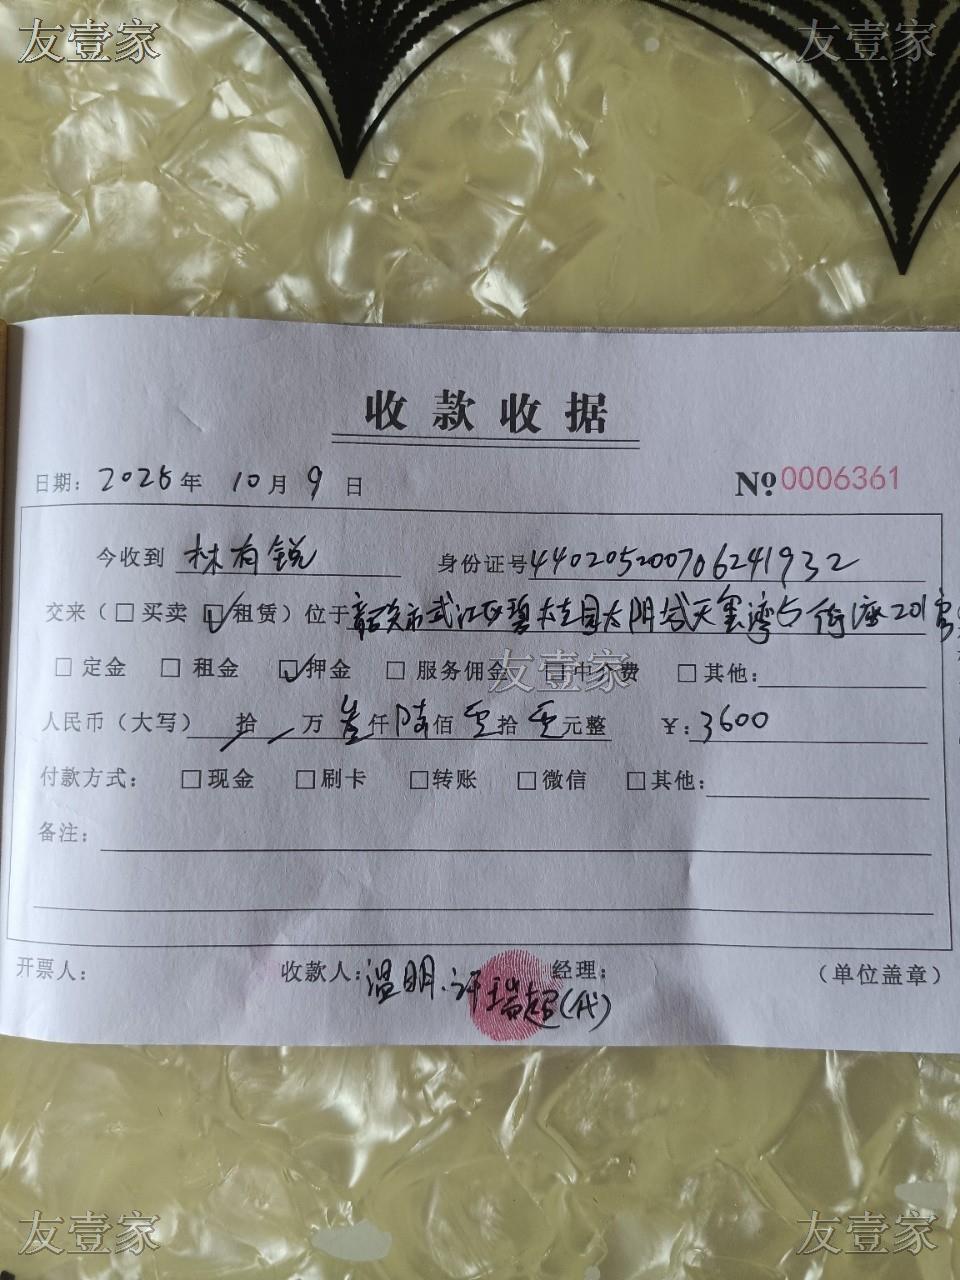 友壹家 友壹家
收款收据
日期：2025年 10月 9日 №0006361
今收到 林有锐 身份证号440205200706241932
交来（□买卖 ☑租赁）位于韶关市武江区碧桂园太阳城天玺湾5街座201房
□定金 □租金 ☑押金 □服务佣金 □中介费 □其他：
友壹家
人民币（大写） 拾 万叁仟陆佰零拾零元整 ¥：3600
付款方式： □现金 □刷卡 □转账 □微信 □其他：
备注：
开票人： 收款人：温明、许瑞超(代) 经理： （单位盖章）
友壹家 友壹家